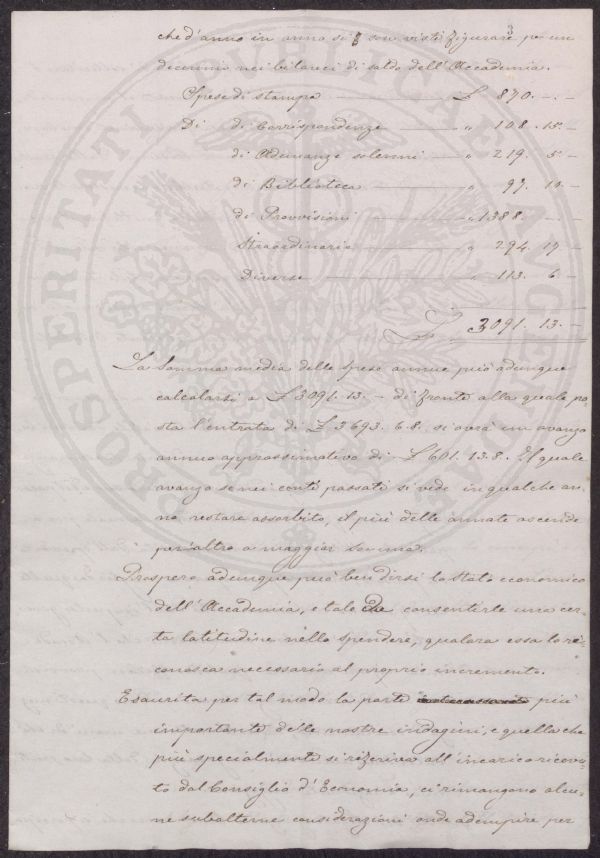 3
che d'anno in anno si son visti figurare per un
decennio nei bilanci di saldo dell'Accademia.
Spese di stampa — £ 870. –. –
Di di Corrispondenze — " 108. 15. –
di Adunanze solenni — " 219. 5 –
di Biblioteca — " 97. 10. –
di Provvisioni — " 1388. – –
Straordinarie — " 294. 17 –
Diverse — " 113. 6 –
£ 3091. 13. –
La Somma media delle spese annue può adunque
calcolarsi a £ 3091. 13. – di fronte alla quale po-
sta l'entrata di £ 3693. 6. 8. si avrà un avanzo
annuo approssimativo di £ 601. 13. 8. Il quale
avanzo se nei conti passati si vede in qualche an-
no restare assorbito, il più delle annate ascende
per altro a maggior somma.
Prospero adunque può ben dirsi lo stato economico
dell'Accademia, e tale da consentirle una cer-
ta latitudine nello spendere, qualora essa lo ri-
conosca necessario al proprio incremento.
Esaurita per tal modo la parte più
importante delle nostre indagini, e quella che
più specialmente si riferiva all'incarico ricevu-
to dal Consiglio d'Economia, ci rimangono alcu-
ne subalterne considerazioni onde adempire per
PROSPERITATI PUBLICAE AUGENDAE